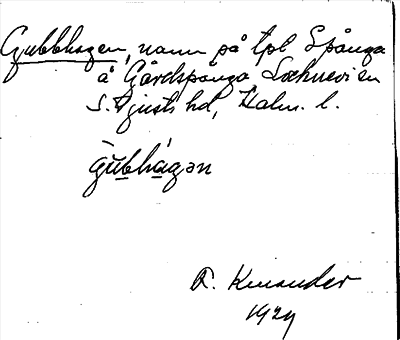 Gubbhagen, namn på tpl Spånga
å Gårdspånga Locknevi sn
S. Tjusts hd, Kalm. l.
gu̠bhá̠gən
R. Kinander
1929